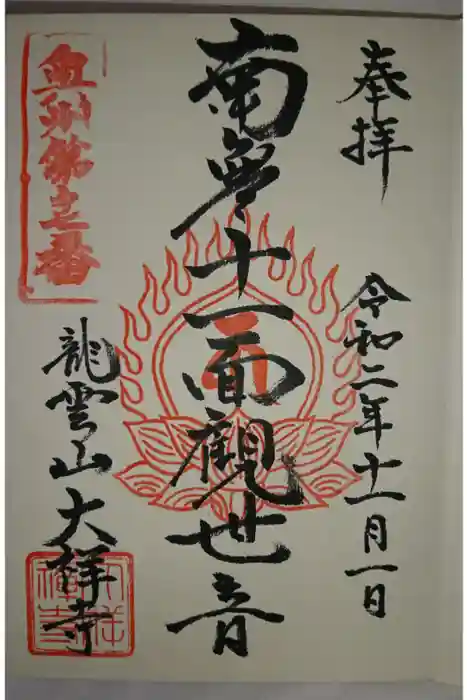 奉拝
令和二年十一月一日
南無十一面觀世音
奥州第十七番
龍雲山大祥寺
大祥
禅寺